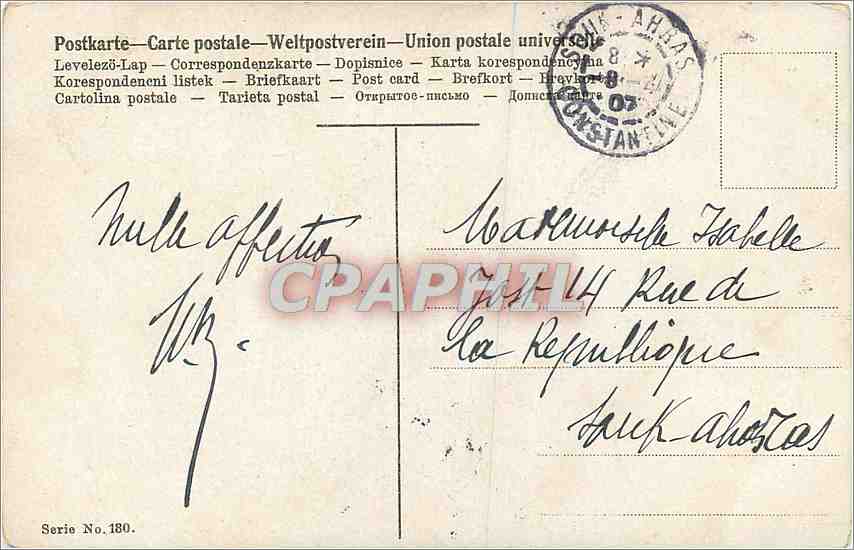 Postkarte—Carte postale—Weltpostverein—Union postale universelle
Levelező-Lap — Correspondenzkarte — Dopisnice — Karta korespondencyjna
Korespondencni listek — Briefkaart — Post card — Brefkort — Brevkort
Cartolina postale — Tarieta postal — Открытое-письмо — Дописна карта
SOUK-AHRAS
8 *
07
CONSTANTINE
Mille affection
Mademoiselle Isabelle
Jost 14 Rue de
la Republique
Souk-Ahras
CPAPHIL
Serie No. 180.